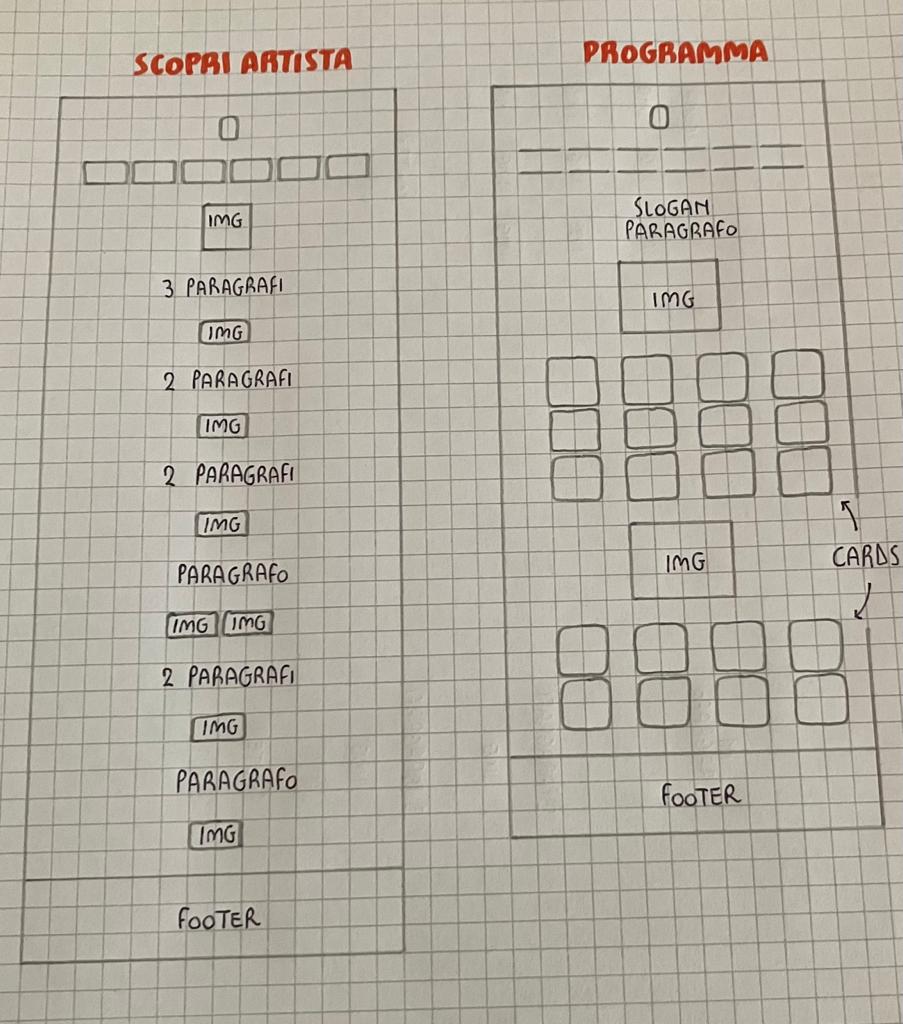 SCOPRI ARTISTA
IMG
3 PARAGRAFI
IMG
2 PARAGRAFI
IMG
2 PARAGRAFI
IMG
PARAGRAFO
IMG IMG
2 PARAGRAFI
IMG
PARAGRAFO
IMG
FOOTER
PROGRAMMA
SLOGAN
PARAGRAFO
IMG
IMG
CARDS
FOOTER